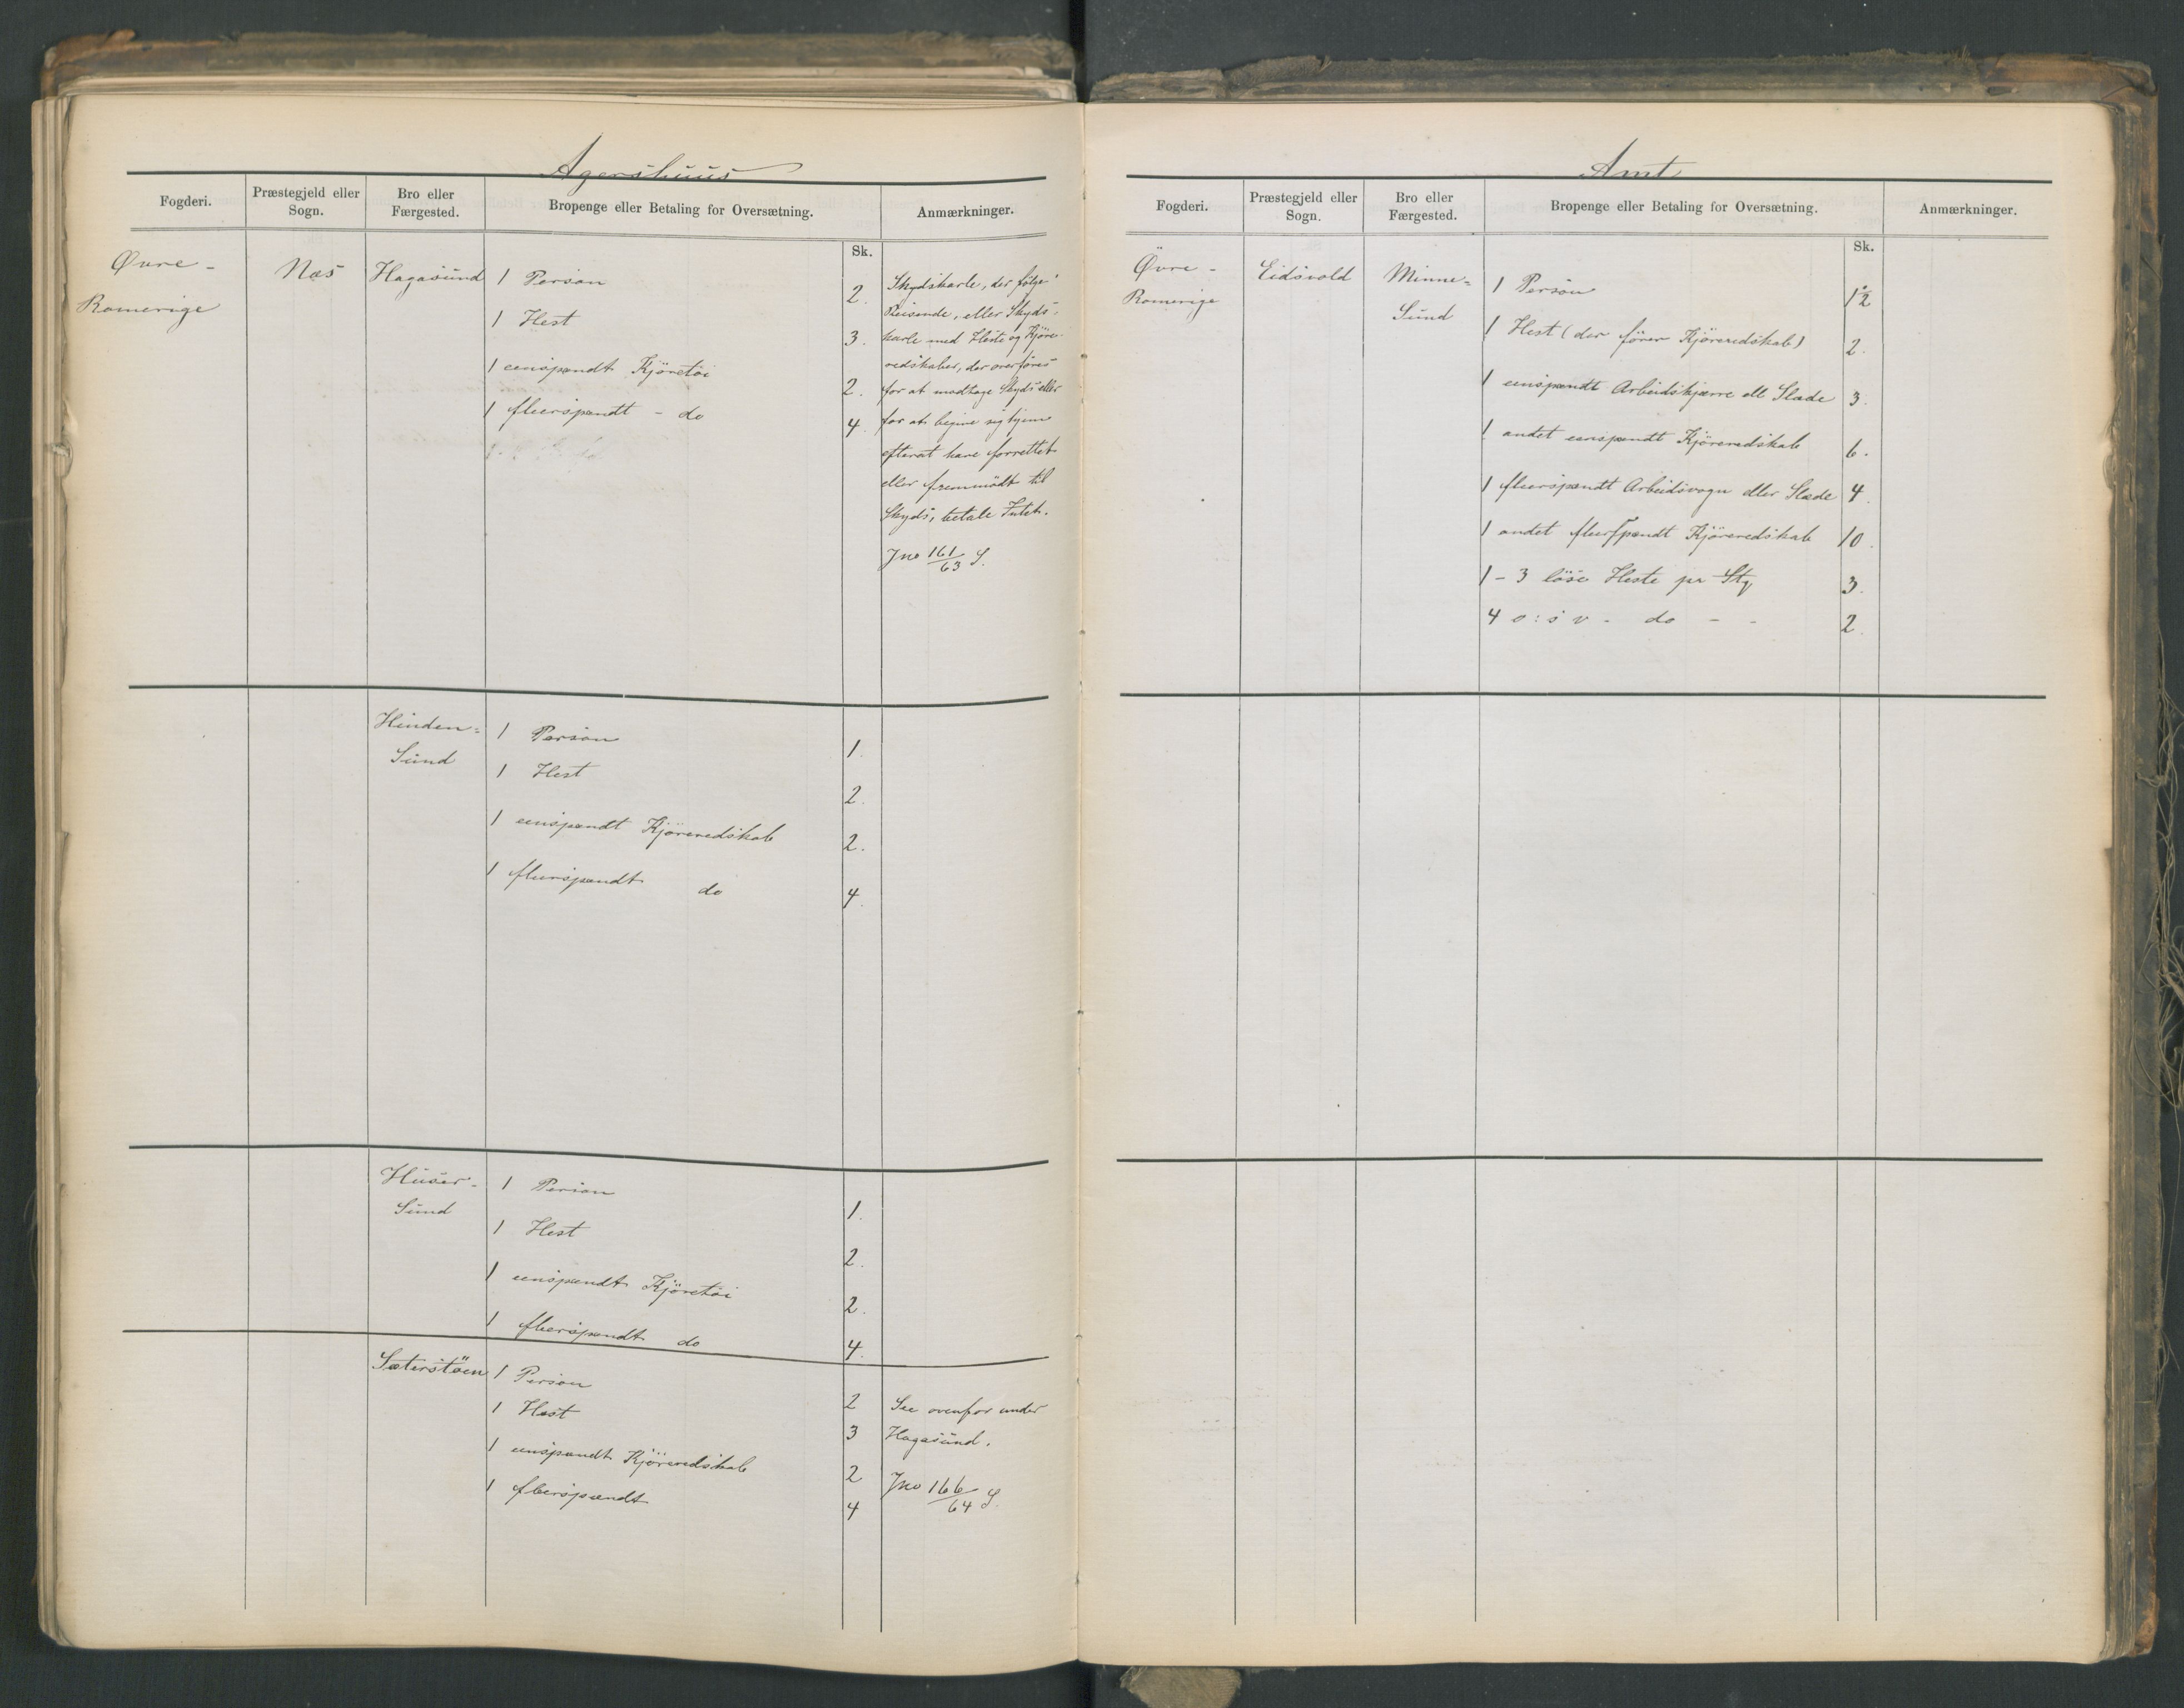 Agershuus
Fogderi. Præstegjeld eller Sogn. Bro eller Færgested. Bropenge eller Betaling for Oversætning. Anmærkninger.
Sk.
Øvre-
Romerige
Næs
Hagasund
1 Person 2.
1 Hest 3.
1 eenspændt Kjöretöi 2.
1 fleerspændt - do 4.
Skydskarle, der følge
Reisende, eller Skyds-
karle med Heste og Kjöre-
redskaber, der overføres
for at modtage Skyds eller
for at begive sig hjem
efterat have forrettet
eller fremmödt til
Skyds, betale Intet.
Jno 161/63 S.
Hinden=
Sund
1 Person 1.
1 Hest 2.
1 eenspændt Kjöreredskab 2.
1 fleerspændt do 4.
Huser-
Sund
1 Person 1.
1 Hest 2.
1 eenspændt Kjöretöi 2.
1 fleerspændt do 4.
Sæterstöen
1 Person 2
1 Hest 3
1 eenspændt Kjöreredskab 2
1 fleerspændt 4
See ovenfor under
Hagasund.
Jno 166/64 S.
Amt
Fogderi. Præstegjeld eller Sogn. Bro eller Færgested. Bropenge eller Betaling for Oversætning. Anmærkninger.
Sk.
Övre-
Romerige
Eidsvold
Minne=
Sund
1 Person 1½
1 Hest (der förer Kjöreredskab) 2.
1 eenspændt Arbeidskjærre ell Slæde 3.
1 andet eenspændt Kjöreredskab 6.
1 fleerspændt Arbeidsvogn eller Slæde 4.
1 andet fleerspændt Kjöreredskab 10.
1-3 löse Heste pr Stk 3.
4 o:s v. do - - 2.